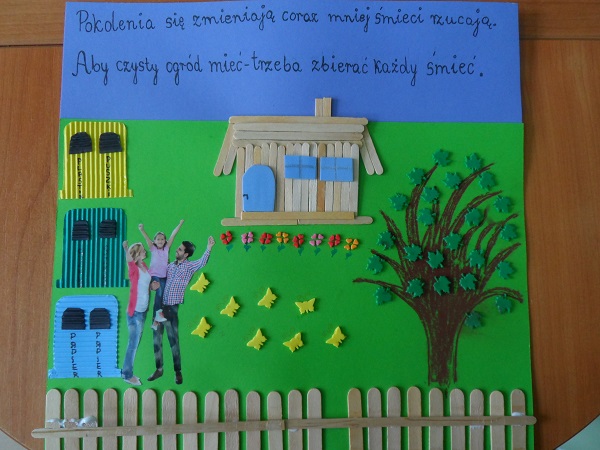 Pokolenia się zmieniają coraz mniej śmieci rzucają.
Aby czysty ogród mieć-trzeba zbierać każdy śmieć.
PUSZKI
PAPIER
PAPIER